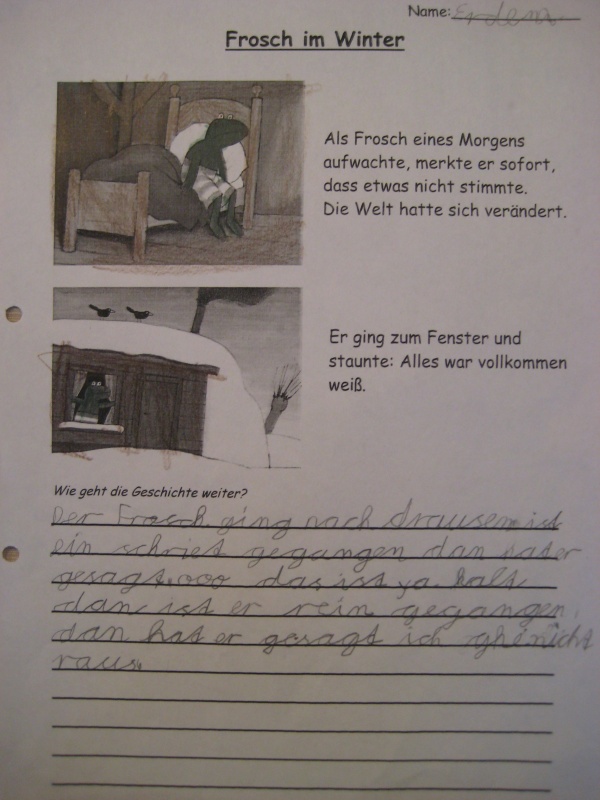 Name: Erdem
Frosch im Winter
Als Frosch eines Morgens
aufwachte, merkte er sofort,
dass etwas nicht stimmte.
Die Welt hatte sich verändert.
Er ging zum Fenster und
staunte: Alles war vollkommen
weiß.
Wie geht die Geschichte weiter?
Der Frosch ging nach drausem ist
ein schriet gegangen dan hat er
gesagt. ooo das ist ya kalt
dan ist er rein gegangen.
dan hat er gesagt ich ghe nicht
raus.